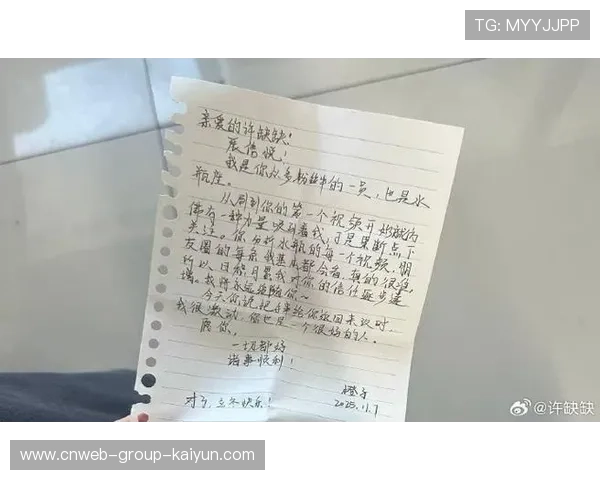 TG: MYYJJPP
亲爱的许缺缺！
展信悦！
我是你众多粉丝中的一员，也是水
瓶座。
从刷到你的第一个视频开始就仿
佛有一种力量吸引着我，于是果断点下
关注。你分析水瓶的每一个视频，朋
友圈的每条我基本都会看，真的很准，
所以日积月累我对你的信任逐步递
增。我将永远追随你～
今天你说把手串给你返回来以时，
我很激动，你也是一个很好的人。
愿你，
一切都好
诸事顺利！
橙子
2025.11.7
对了，立冬快乐！
@许缺缺
www-cnweb-group-kaiyun.com